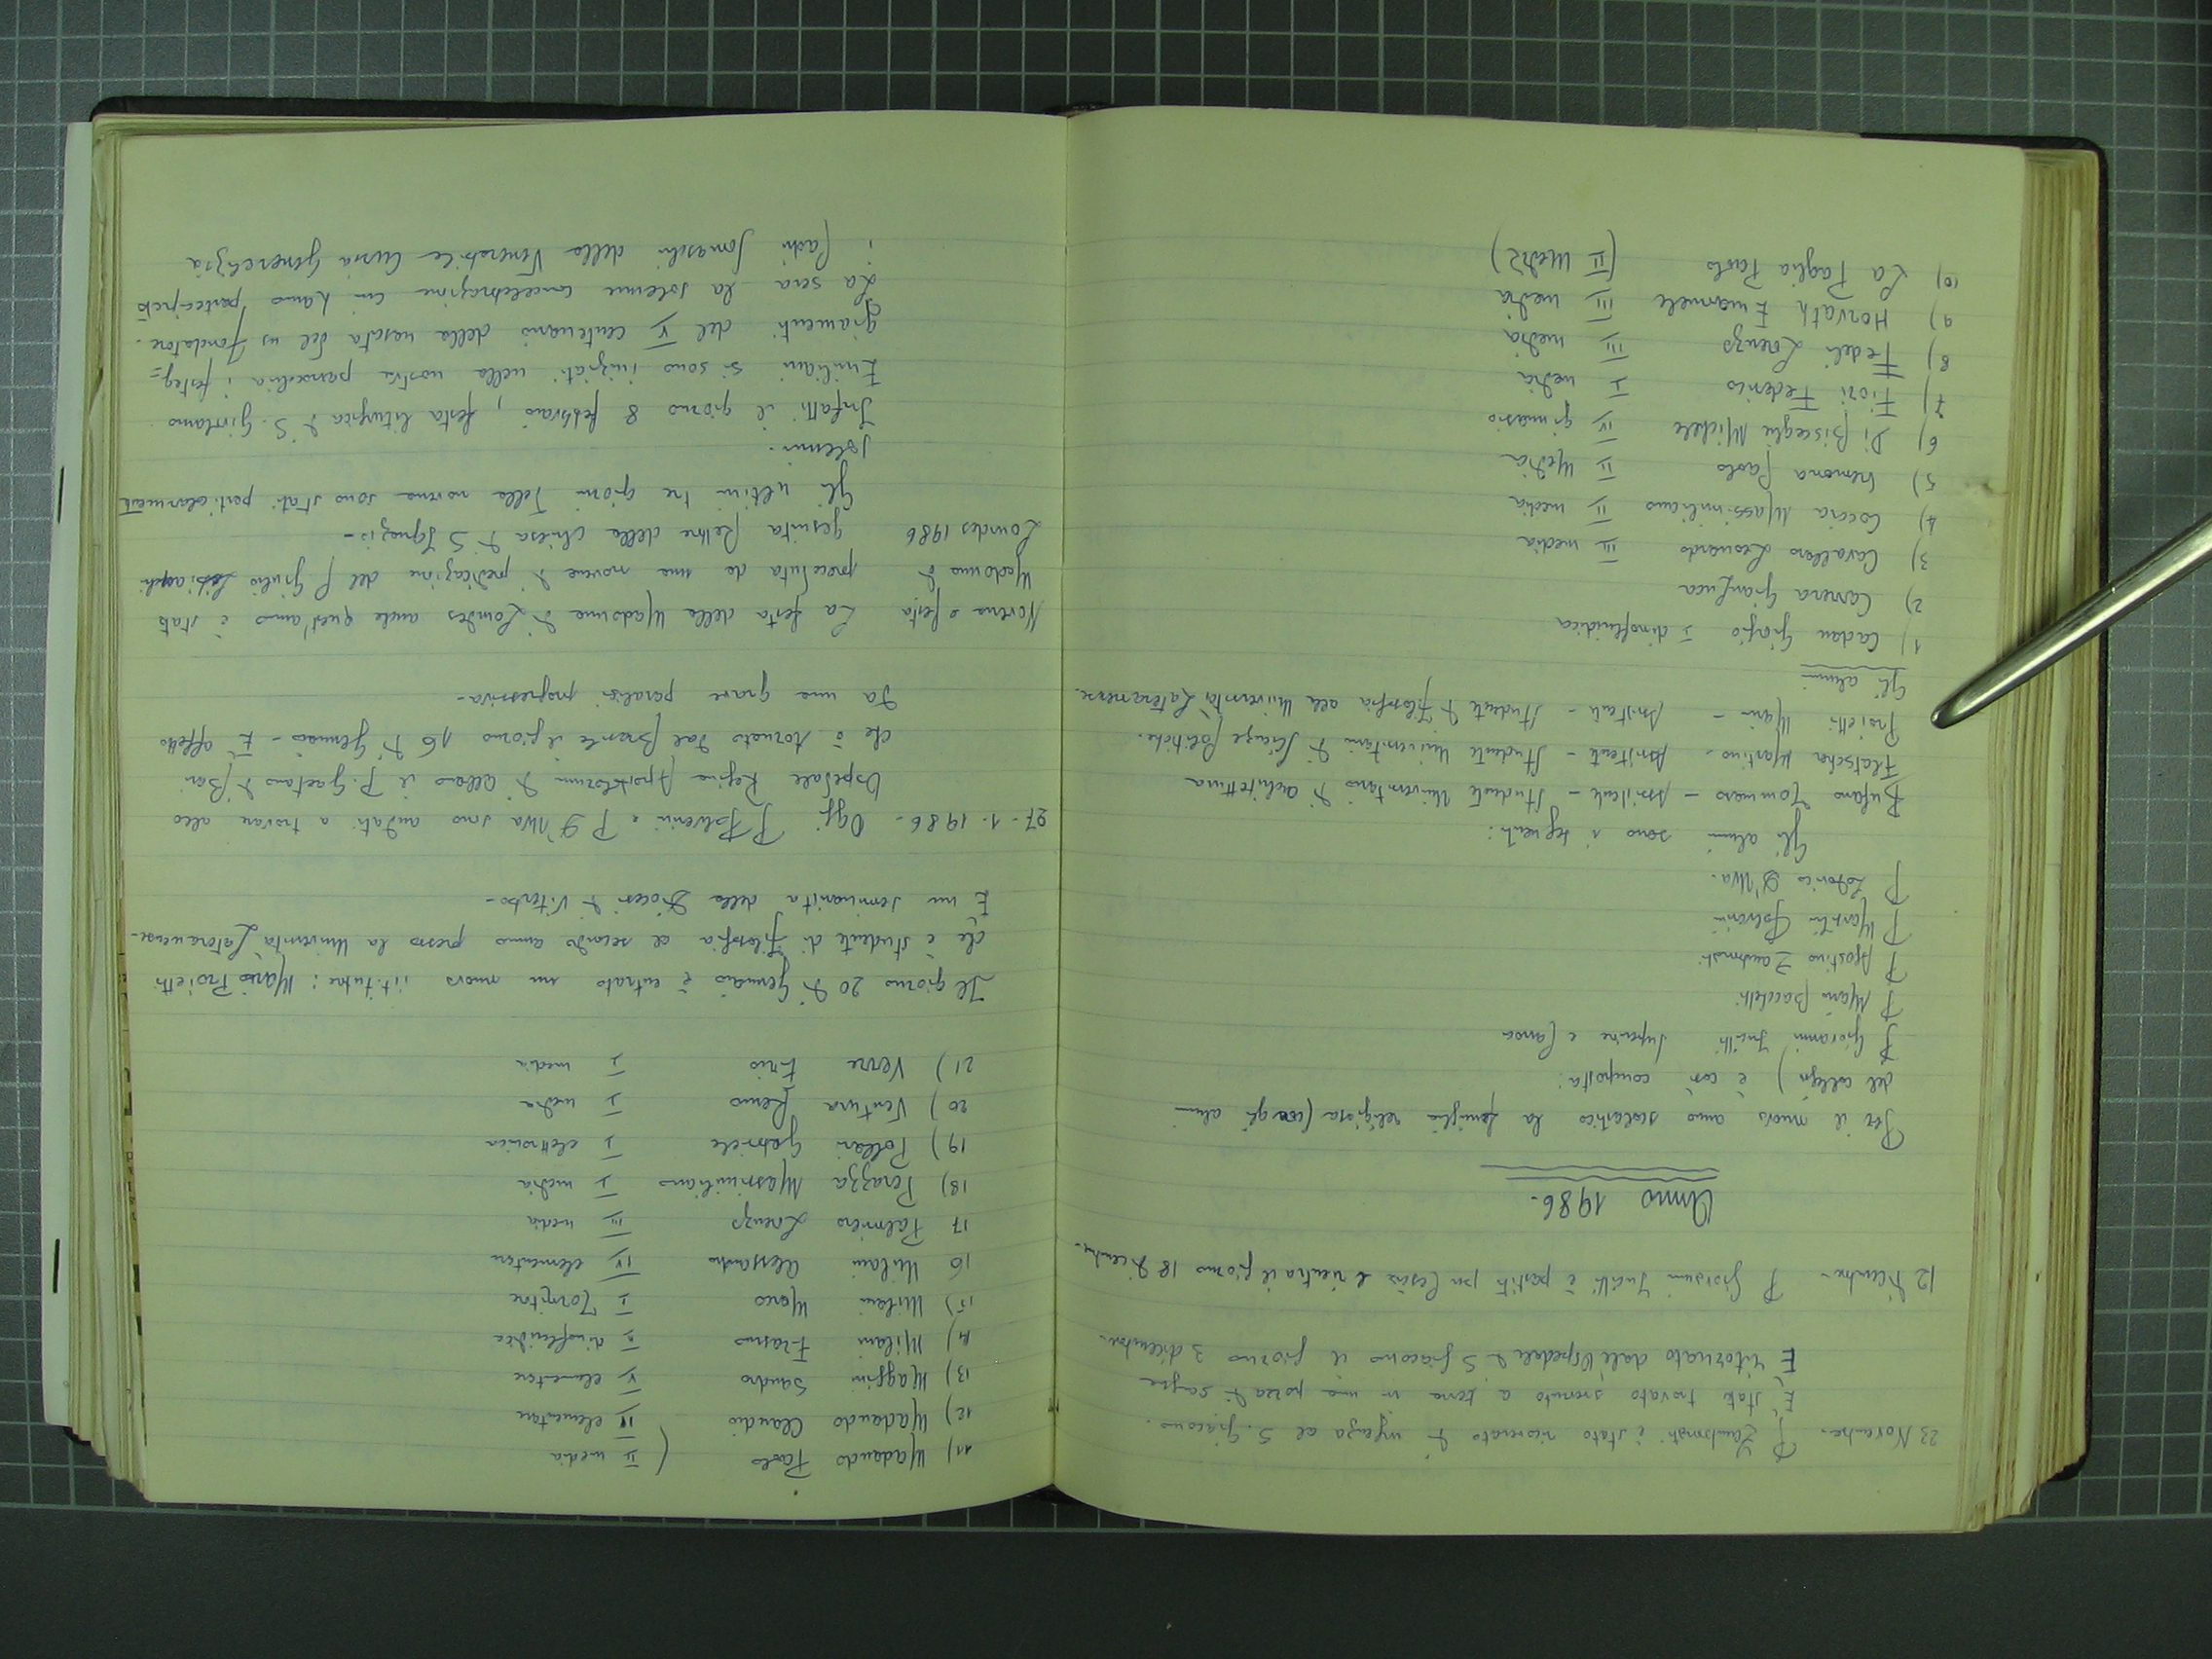 23 Novembre - P Zambonati è stato ricoverato d'urgenza al S. Giacomo.
È stato trovato svenuto a terra in una pozza di sangue
È ritornato dall'Ospedale di S Giacomo il giorno 3 dicembre.
12 Dicembre - P Giovanni è partito per e rientra il giorno 18 Dicembre.
Anno 1986.
Per il nuovo anno scolastico la famiglia religiosa (con gli alunni
del collegio) è così composta:
P Giovanni Superiore e Parroco
P Mario Bacchetti
P Agostino Zambonati
P Martin
P Lodovico D'Uva.
Gli alunni sono i seguenti:
Bufano Tommaso - Assistente - Studente Universitario di architettura
Flatscher Martino - Assistente - Studente Universitario di Scienze Politiche.
Proietti Mario - Assistente - Studente di Filosofia alla Università Lateranense.
Gli alunni
1) Cadau Giorgio I
2) Carrera Gianluca
3) Cavallaro Leonardo III media
4) Coccia Massimiliano II media
5) Cremona Paolo II Media
6) Di Bisceglie Michele IV ginnasio
7) Fiori Federico I media
8) Fedeli Lorenzo III media
9) Horvath Emanuele III media
10) La Paglia Paolo (II Media)
11) Madaudo Paolo ( II media
12) Madaudo Claudio IV elementare
13) Maggini Sandro V elementare
14) Milani Erasmo II
15) Milani Marco I
16 Milani Alessandro IV elementare
17 Palmiero Lorenzo III media
18) Perazza Massimiliano I media
19) Pollari Gabriele I elettronica
20) Ventura Remo I media
21) Verre Enio I media
Il giorno 20 di Gennaio è entrato un nuovo istitutore: Mario Proietti
che è studente di Filosofia al secondo anno presso la Università Lateranense.
È un seminarista della Diocesi di Viterbo.
27-1-1986 - Oggi P e P D'Uva sono andati a trovare allo
Ospedale Regina Apostolorum di Albano il P. Gaetano di Bari
che è tornato dal Brasile il giorno 16 di Gennaio - È affetto
da una grave paralisi progressiva -
Novena e festa La festa della Madonna di Lourdes anche quest'anno è stata
Madonna di preceduta da una novena di predicazione del P Giulio
Lourdes 1986 gesuita Rettore della chiesa di S Ignazio -
Gli ultimi tre giorni della novena sono stati particolarmente
solenni.
Infatti il giorno 8 febbraio, festa liturgica di S. Girolamo
Emiliani si sono iniziati nella nostra parrocchia i festeg=
giamenti del V centenario della nascita del ns fondatore.
La sera la solenne concelebrazione cui hanno partecipato
i Padri Somaschi della Venerabile Curia Generalizia